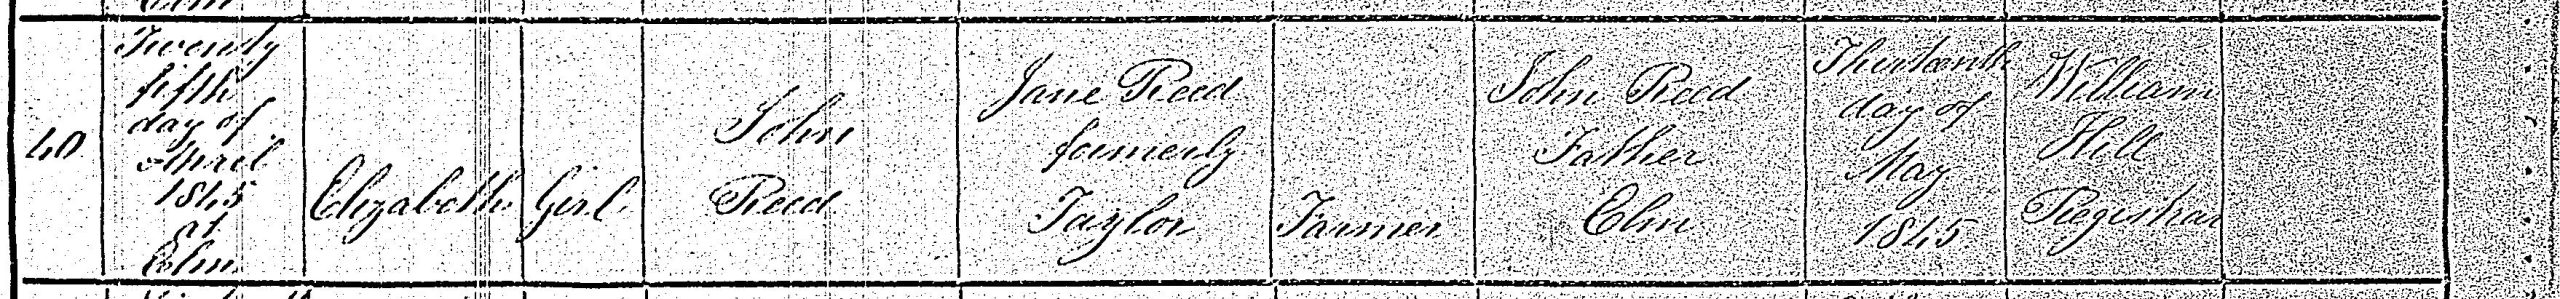 40
Twenty
fifth
day of
April
1845
at
Elm
Elizabeth
Girl
John
Reed
Jane Reed
formerly
Taylor
Farmer
John Reed
Father
Elm
Thirteenth
day of
May
1845
William
Hill
Registrar